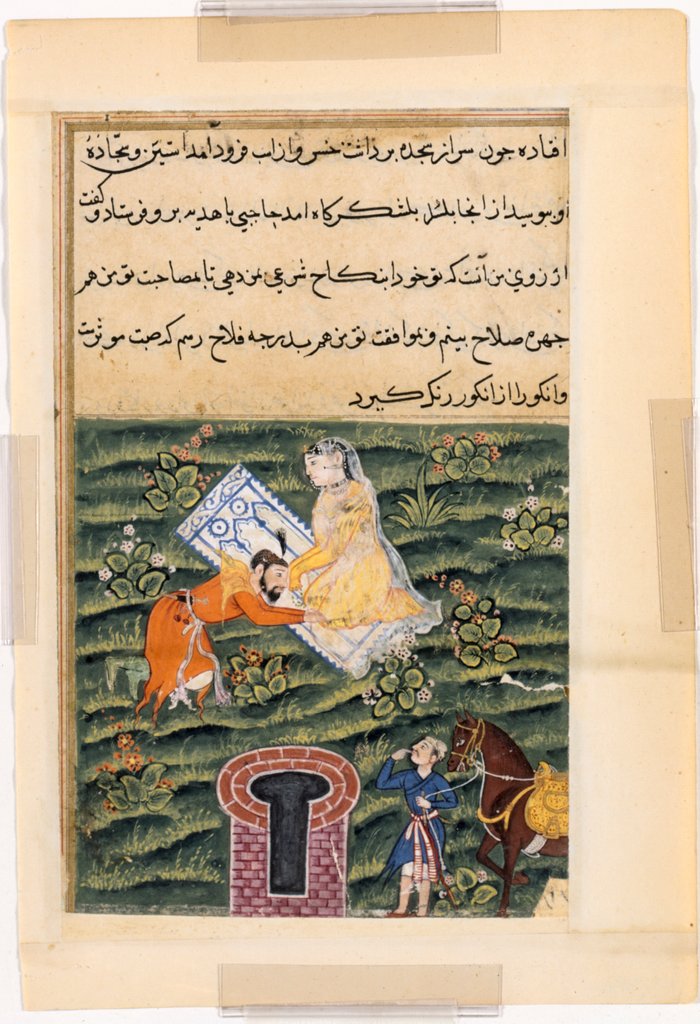 افتاده چون سر از سجده برداشت خسرو از اسب فرود آمد آستین و سجّادهٔ
او ببوسید از انجا بلشکرکاه امد حاجبی با هدیه برو فرستاد و کفت
ارزوی من آنست که تو خود را بنکاح شرعی بمن دهی تا بمصاحبت تو من هم
چهرهٔ صلاح بینم و بموافقت تو من هم بدرجه فلاح رسم که صحبت موثرست
وانکور از انکور رنک کیرد